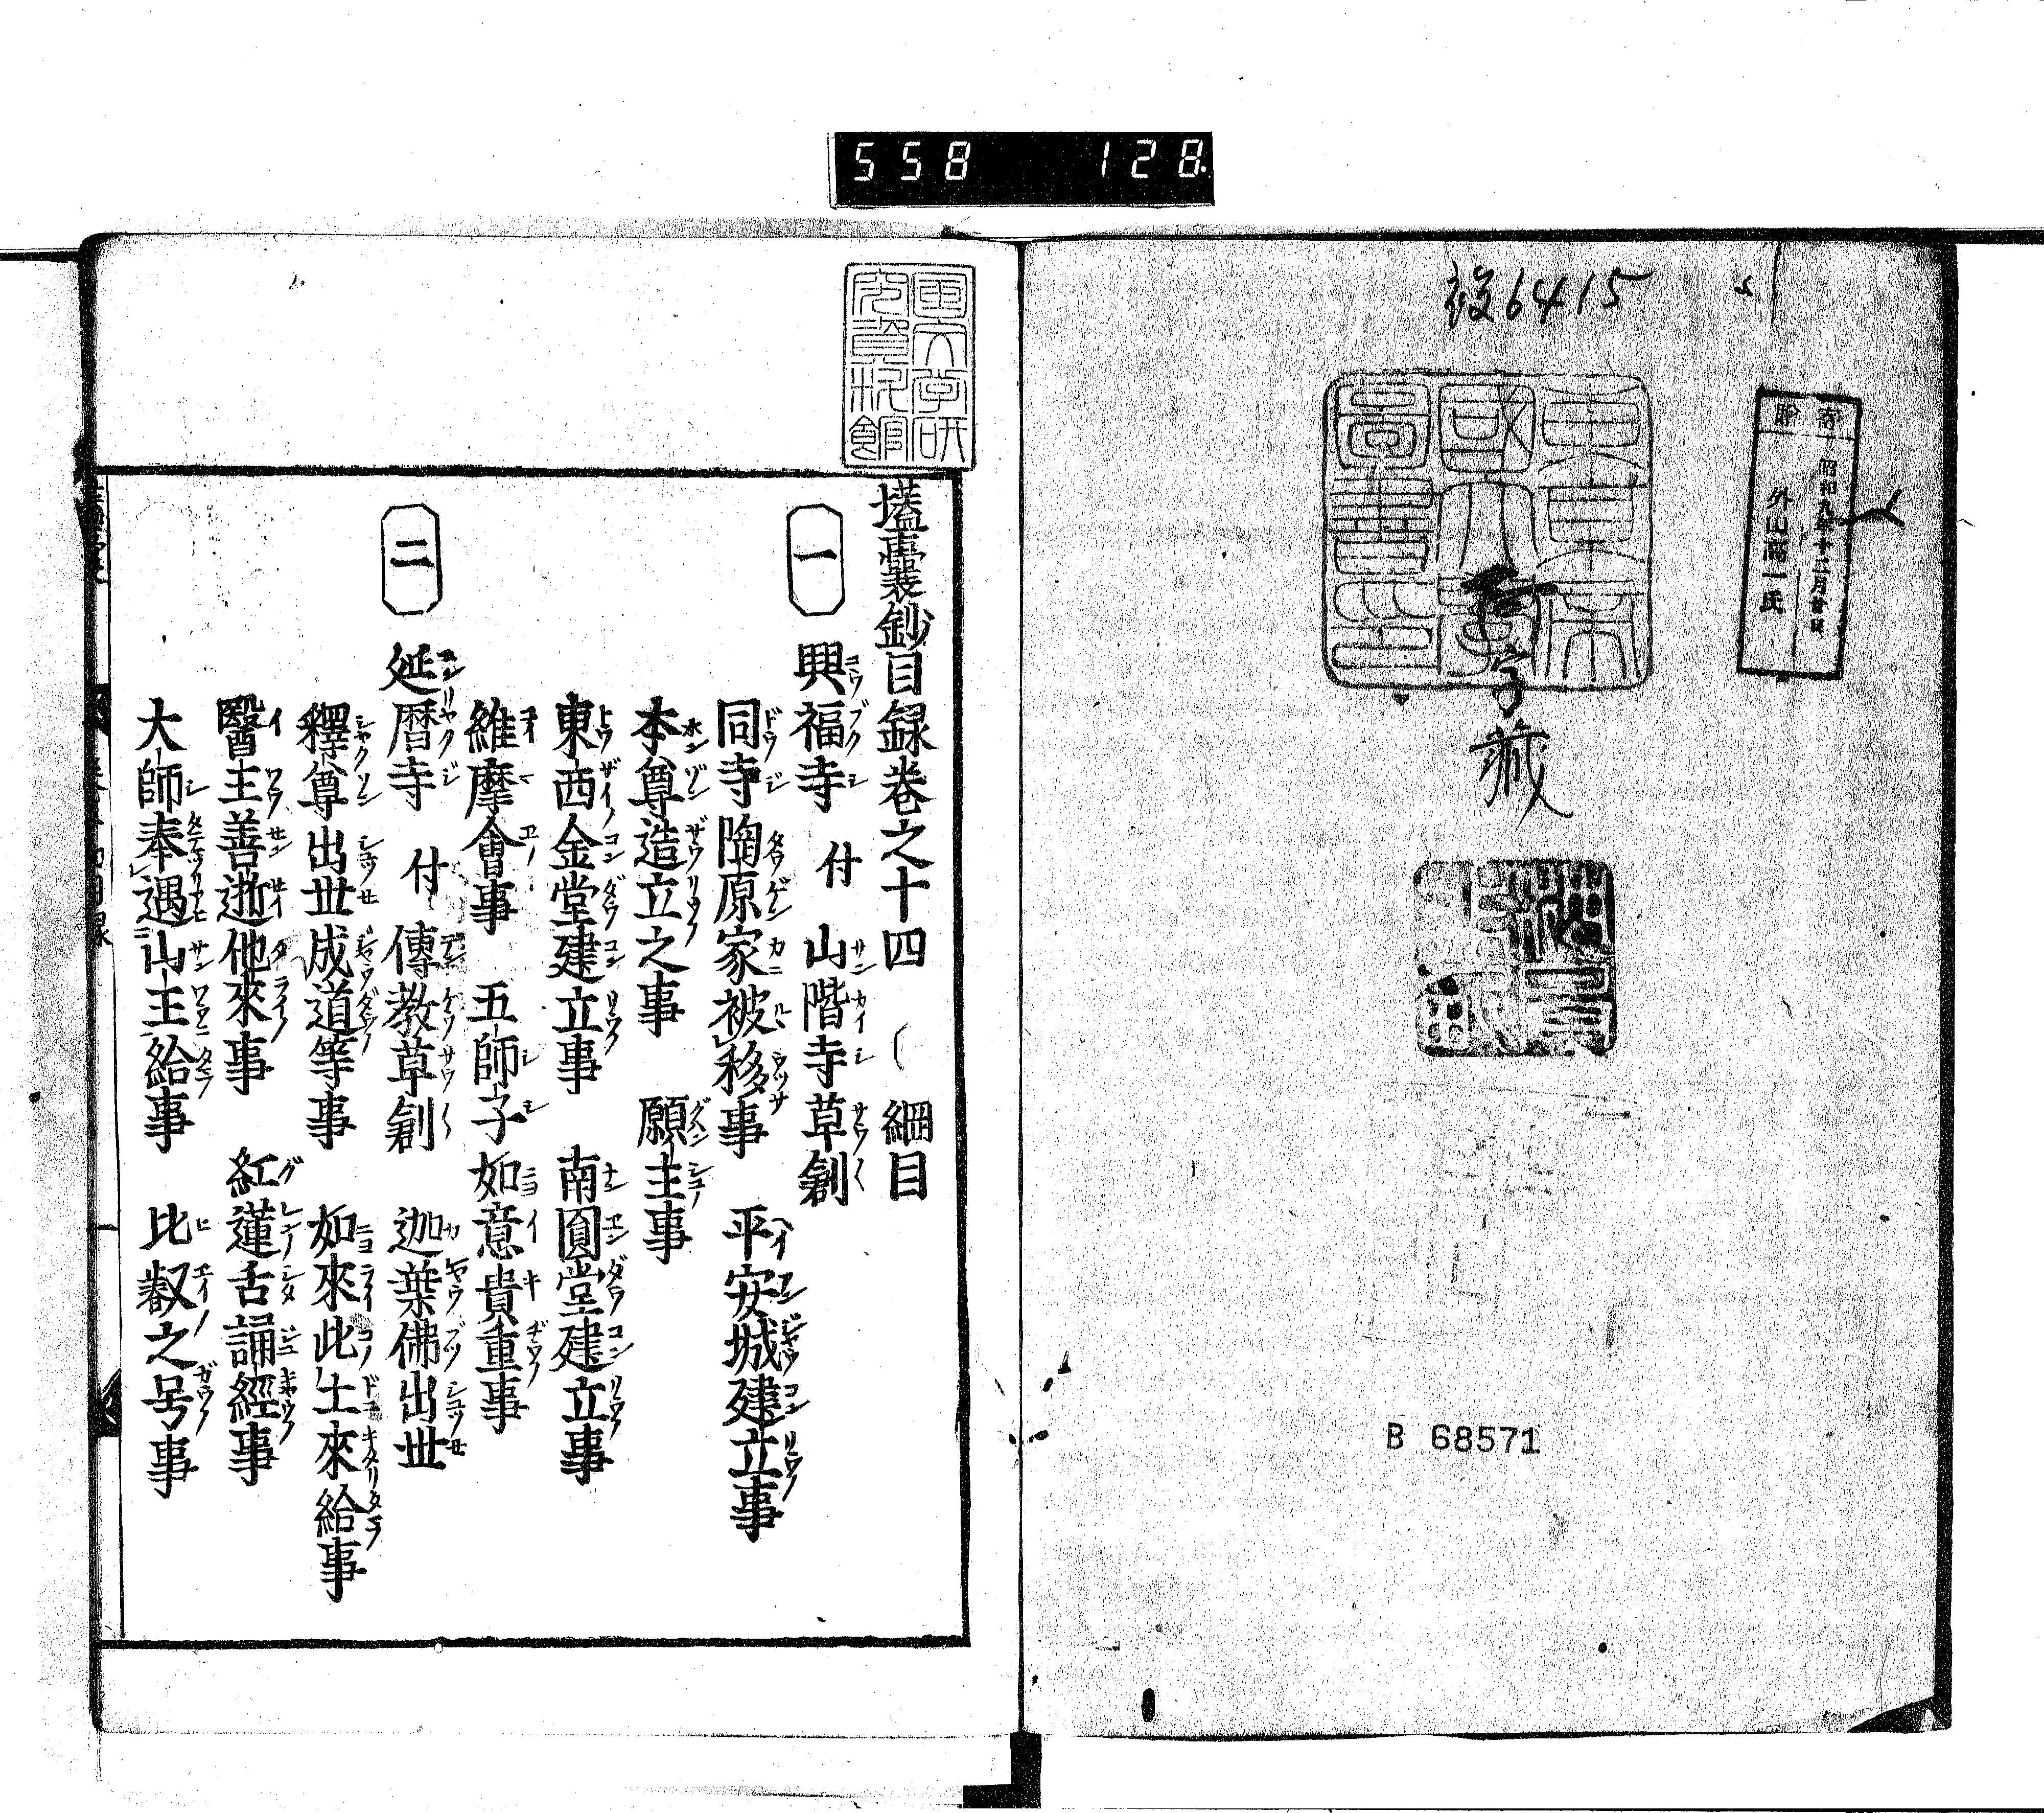 558 128
6415
東京帝
國大學
圖書印
寄
贈
昭和九年十二月廿日
外山高一氏
字藏
B 68571
国文学研
究資料館
壒囊鈔目録巻之十四 綱目
一
興福寺 付 山階寺草創
同寺陶原家被移事 平安城建立事
本尊造立之事 願主事
東西金堂建立事 南圓堂建立事
維摩會事 五師子如意貴重事
二
延暦寺 付 傳教草創 迦葉佛出世
釋尊出世成道等事 如來此土來給事
醫王善逝他來事 紅蓮舌誦經事
大師奉遇山王給事 比叡之号事